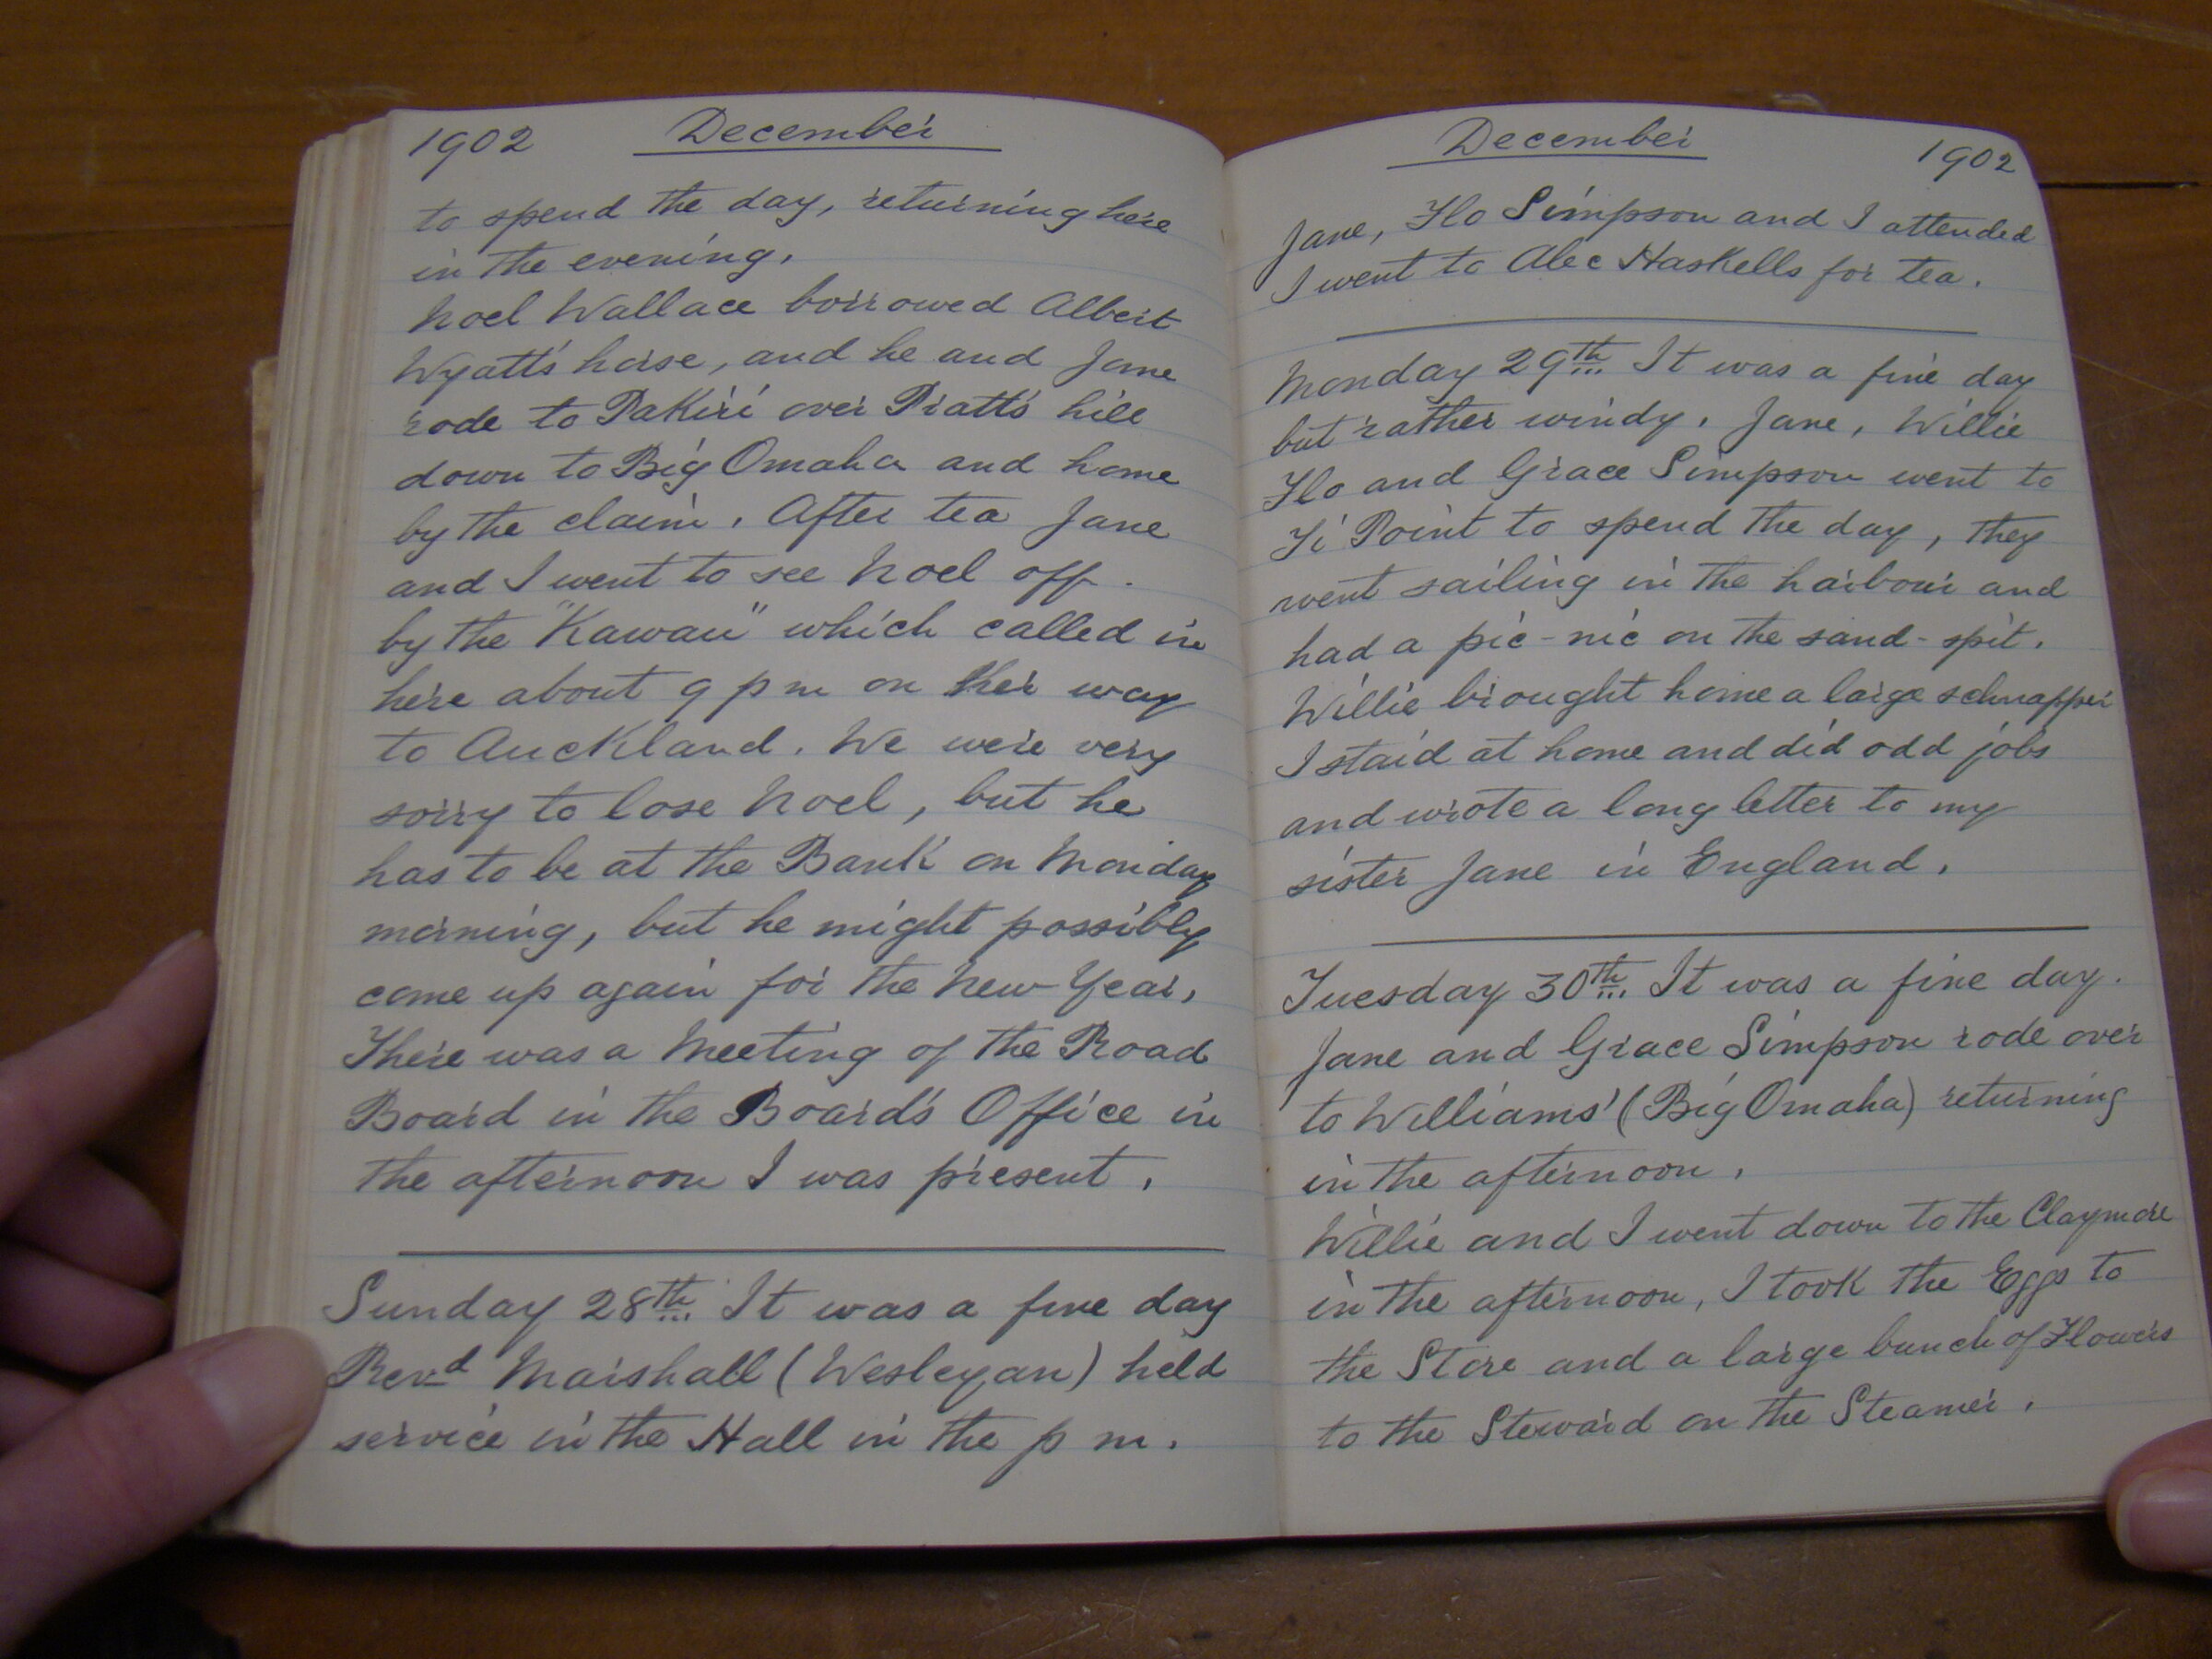 1902 December
to spend the day, returning here
in the evening.
Noel Wallace borrowed Albert
Wyatt's horse, and he and Jane
rode to Pakiri over Pratt's hill
down to Big Omaha and home
by the claim. After tea Jane
and I went to see Noel off.
by the "Kawau" which called in
here about 9 p m on her way
to Auckland. We were very
sorry to lose Noel, but he
has to be at the Bank on Monday
morning, but he might possibly
come up again for the New Year,
There was a Meeting of the Road
Board in the Board's Office in
the afternoon I was present.
Sunday 28th It was a fine day
Revd Marshall (Wesleyan) held
service in the Hall in the p m.
December 1902
Jane, Flo Simpson and I attended
I went to Alec Haskells for tea.
Monday 29th It was a fine day
but rather windy. Jane, Willie
Flo and Grace Simpson went to
Ti Point to spend the day, they
went sailing in the harbour and
had a pic-nic on the sand-spit.
Willie brought home a large schnapper
I staid at home and did odd jobs
and wrote a long letter to my
sister Jane in England.
Tuesday 30th It was a fine day.
Jane and Grace Simpson rode over
to Williams' (Big Omaha) returning
in the afternoon.
Willie and I went down to the Claymore
in the afternoon, I took the Eggs to
the Store and a large bunch of Flowers
to the Steward on the Steamer.